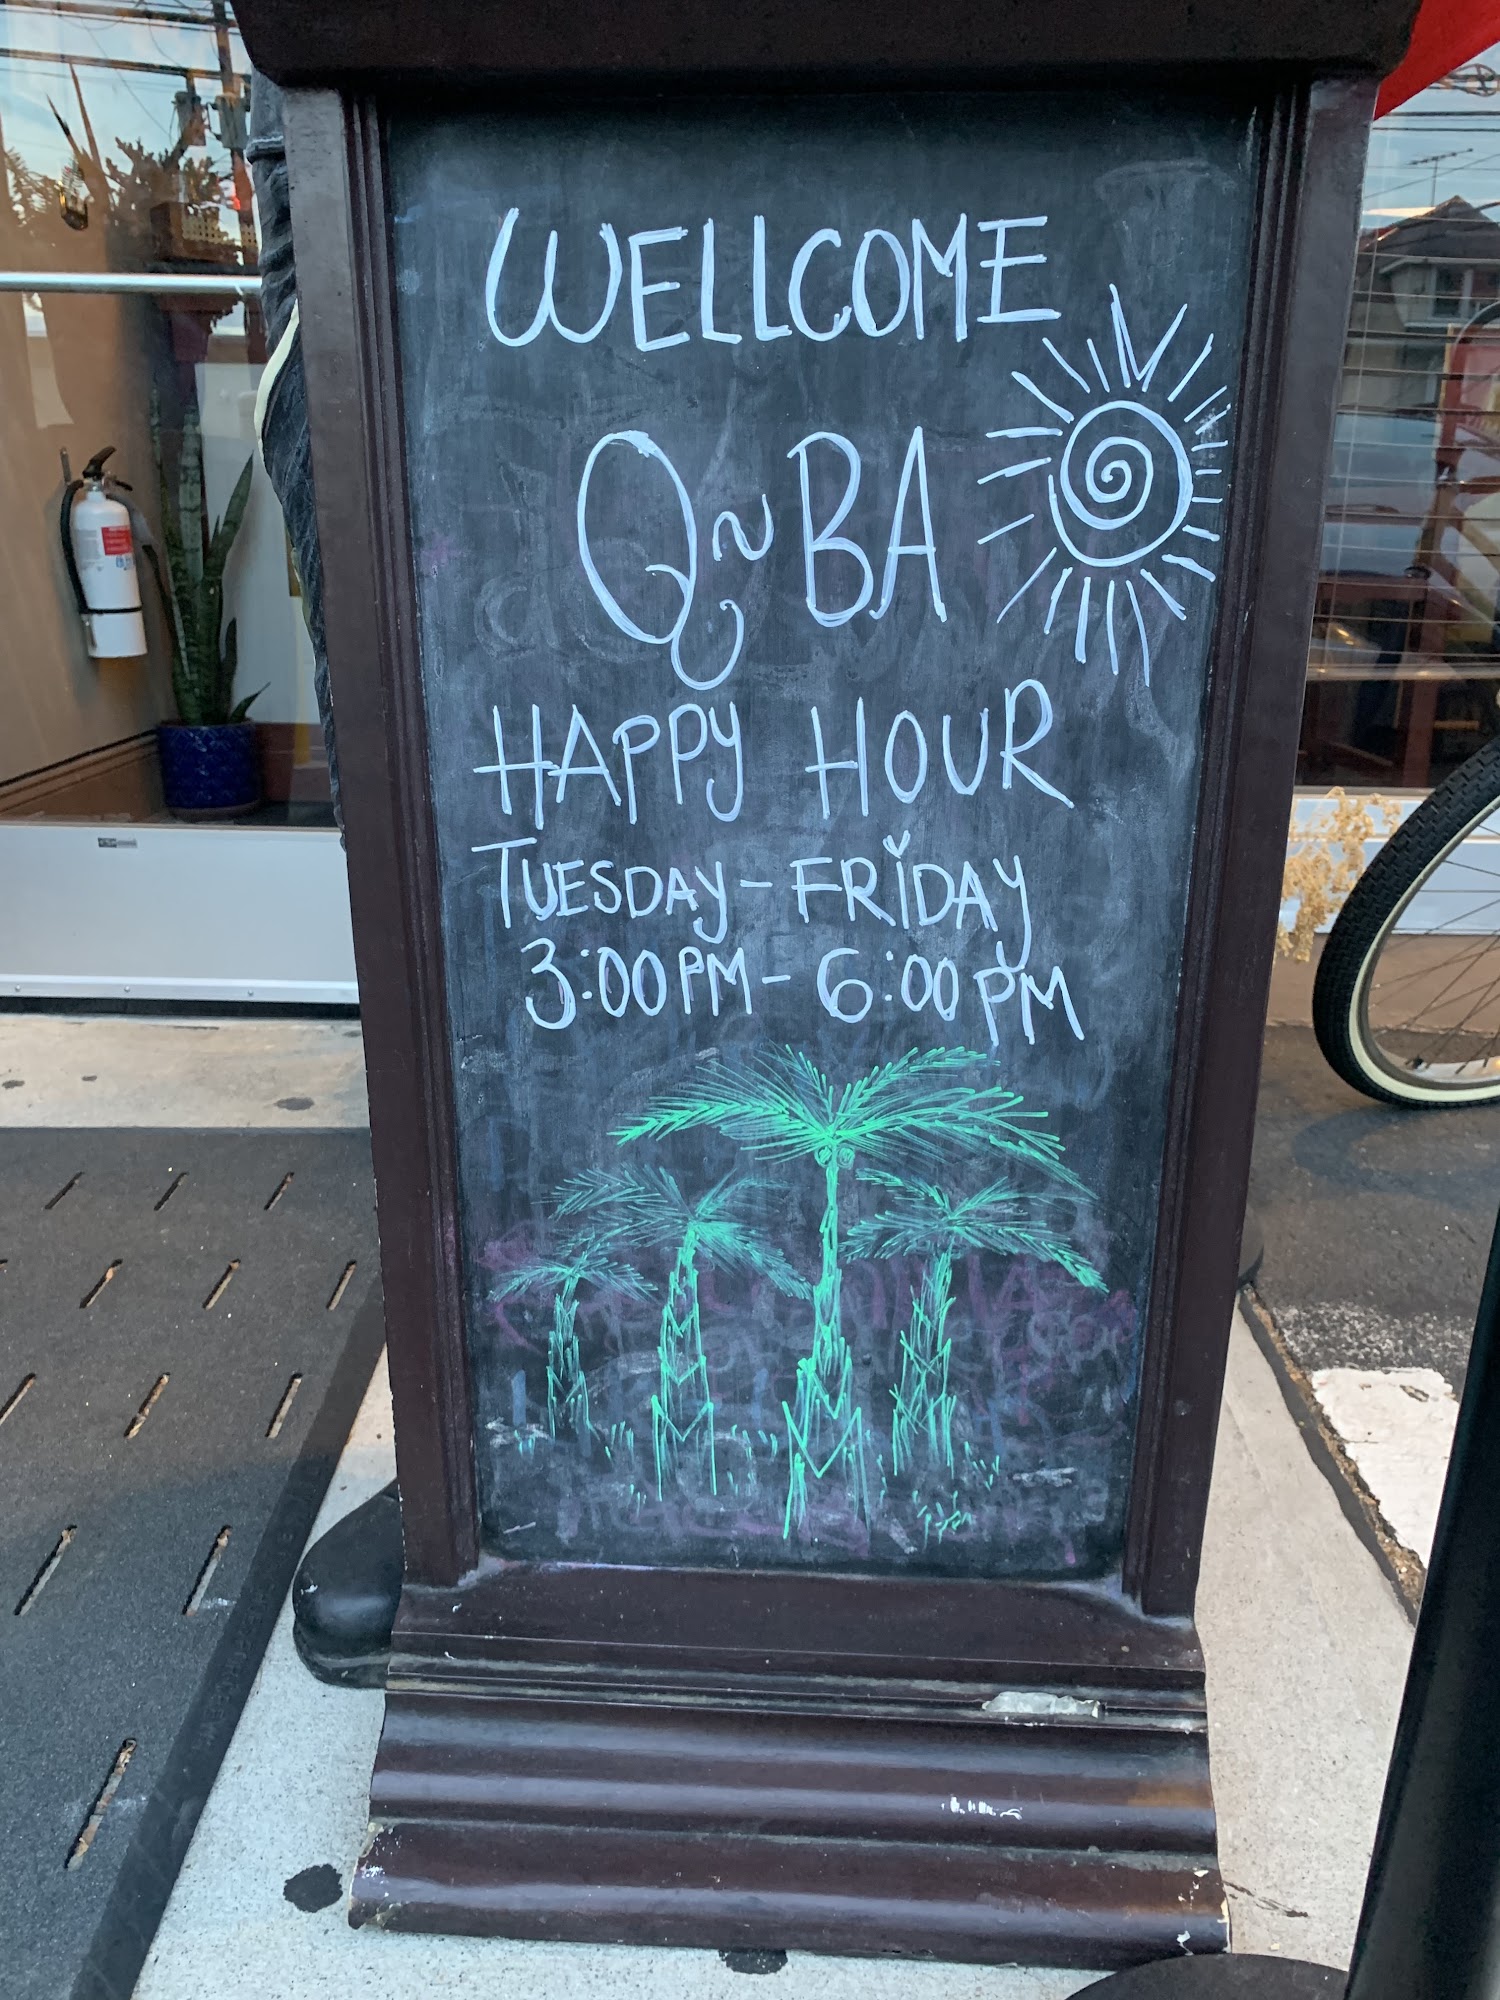 WELLCOME
Q~BA
HAPPY HOUR
TUESDAY - FRIDAY
3:00PM - 6:00PM